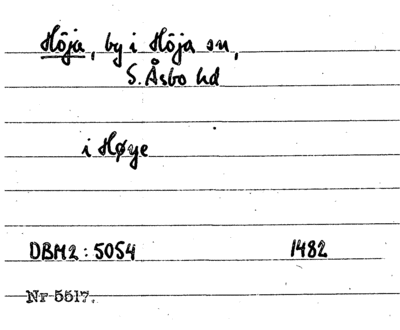 Höja, by i Höja sn,
S. Åsbo hd
i Høye
DBM2: 5054 1482
Nr 5517.